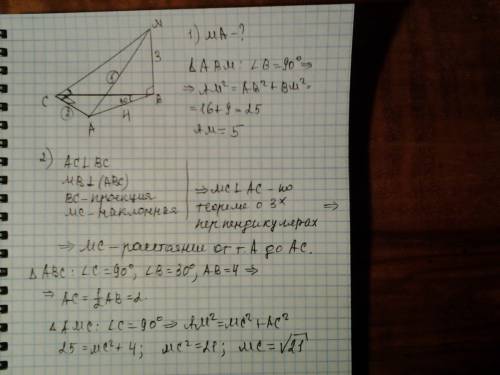 M
3
C
B
A
4
5
2
30°
1) MA - ?
△ABM: ∠B = 90° ⇒
⇒ AM² = AB² + BM² =
= 16 + 9 = 25
AM = 5
2) AC ⊥ BC
MB ⊥ (ABC)
BC - проекция
MC - наклонная
⇒ MC ⊥ AC - по
теореме о 3х
перпендикулярах
⇒
⇒ MC - расстояние от т. A до AC.
△ABC: ∠C = 90°, ∠B = 30°, AB = 4 ⇒
⇒ AC = ½ AB = 2
△AMC: ∠C = 90° ⇒ AM² = MC² + AC²
25 = MC² + 4; MC² = 21; MC = √21